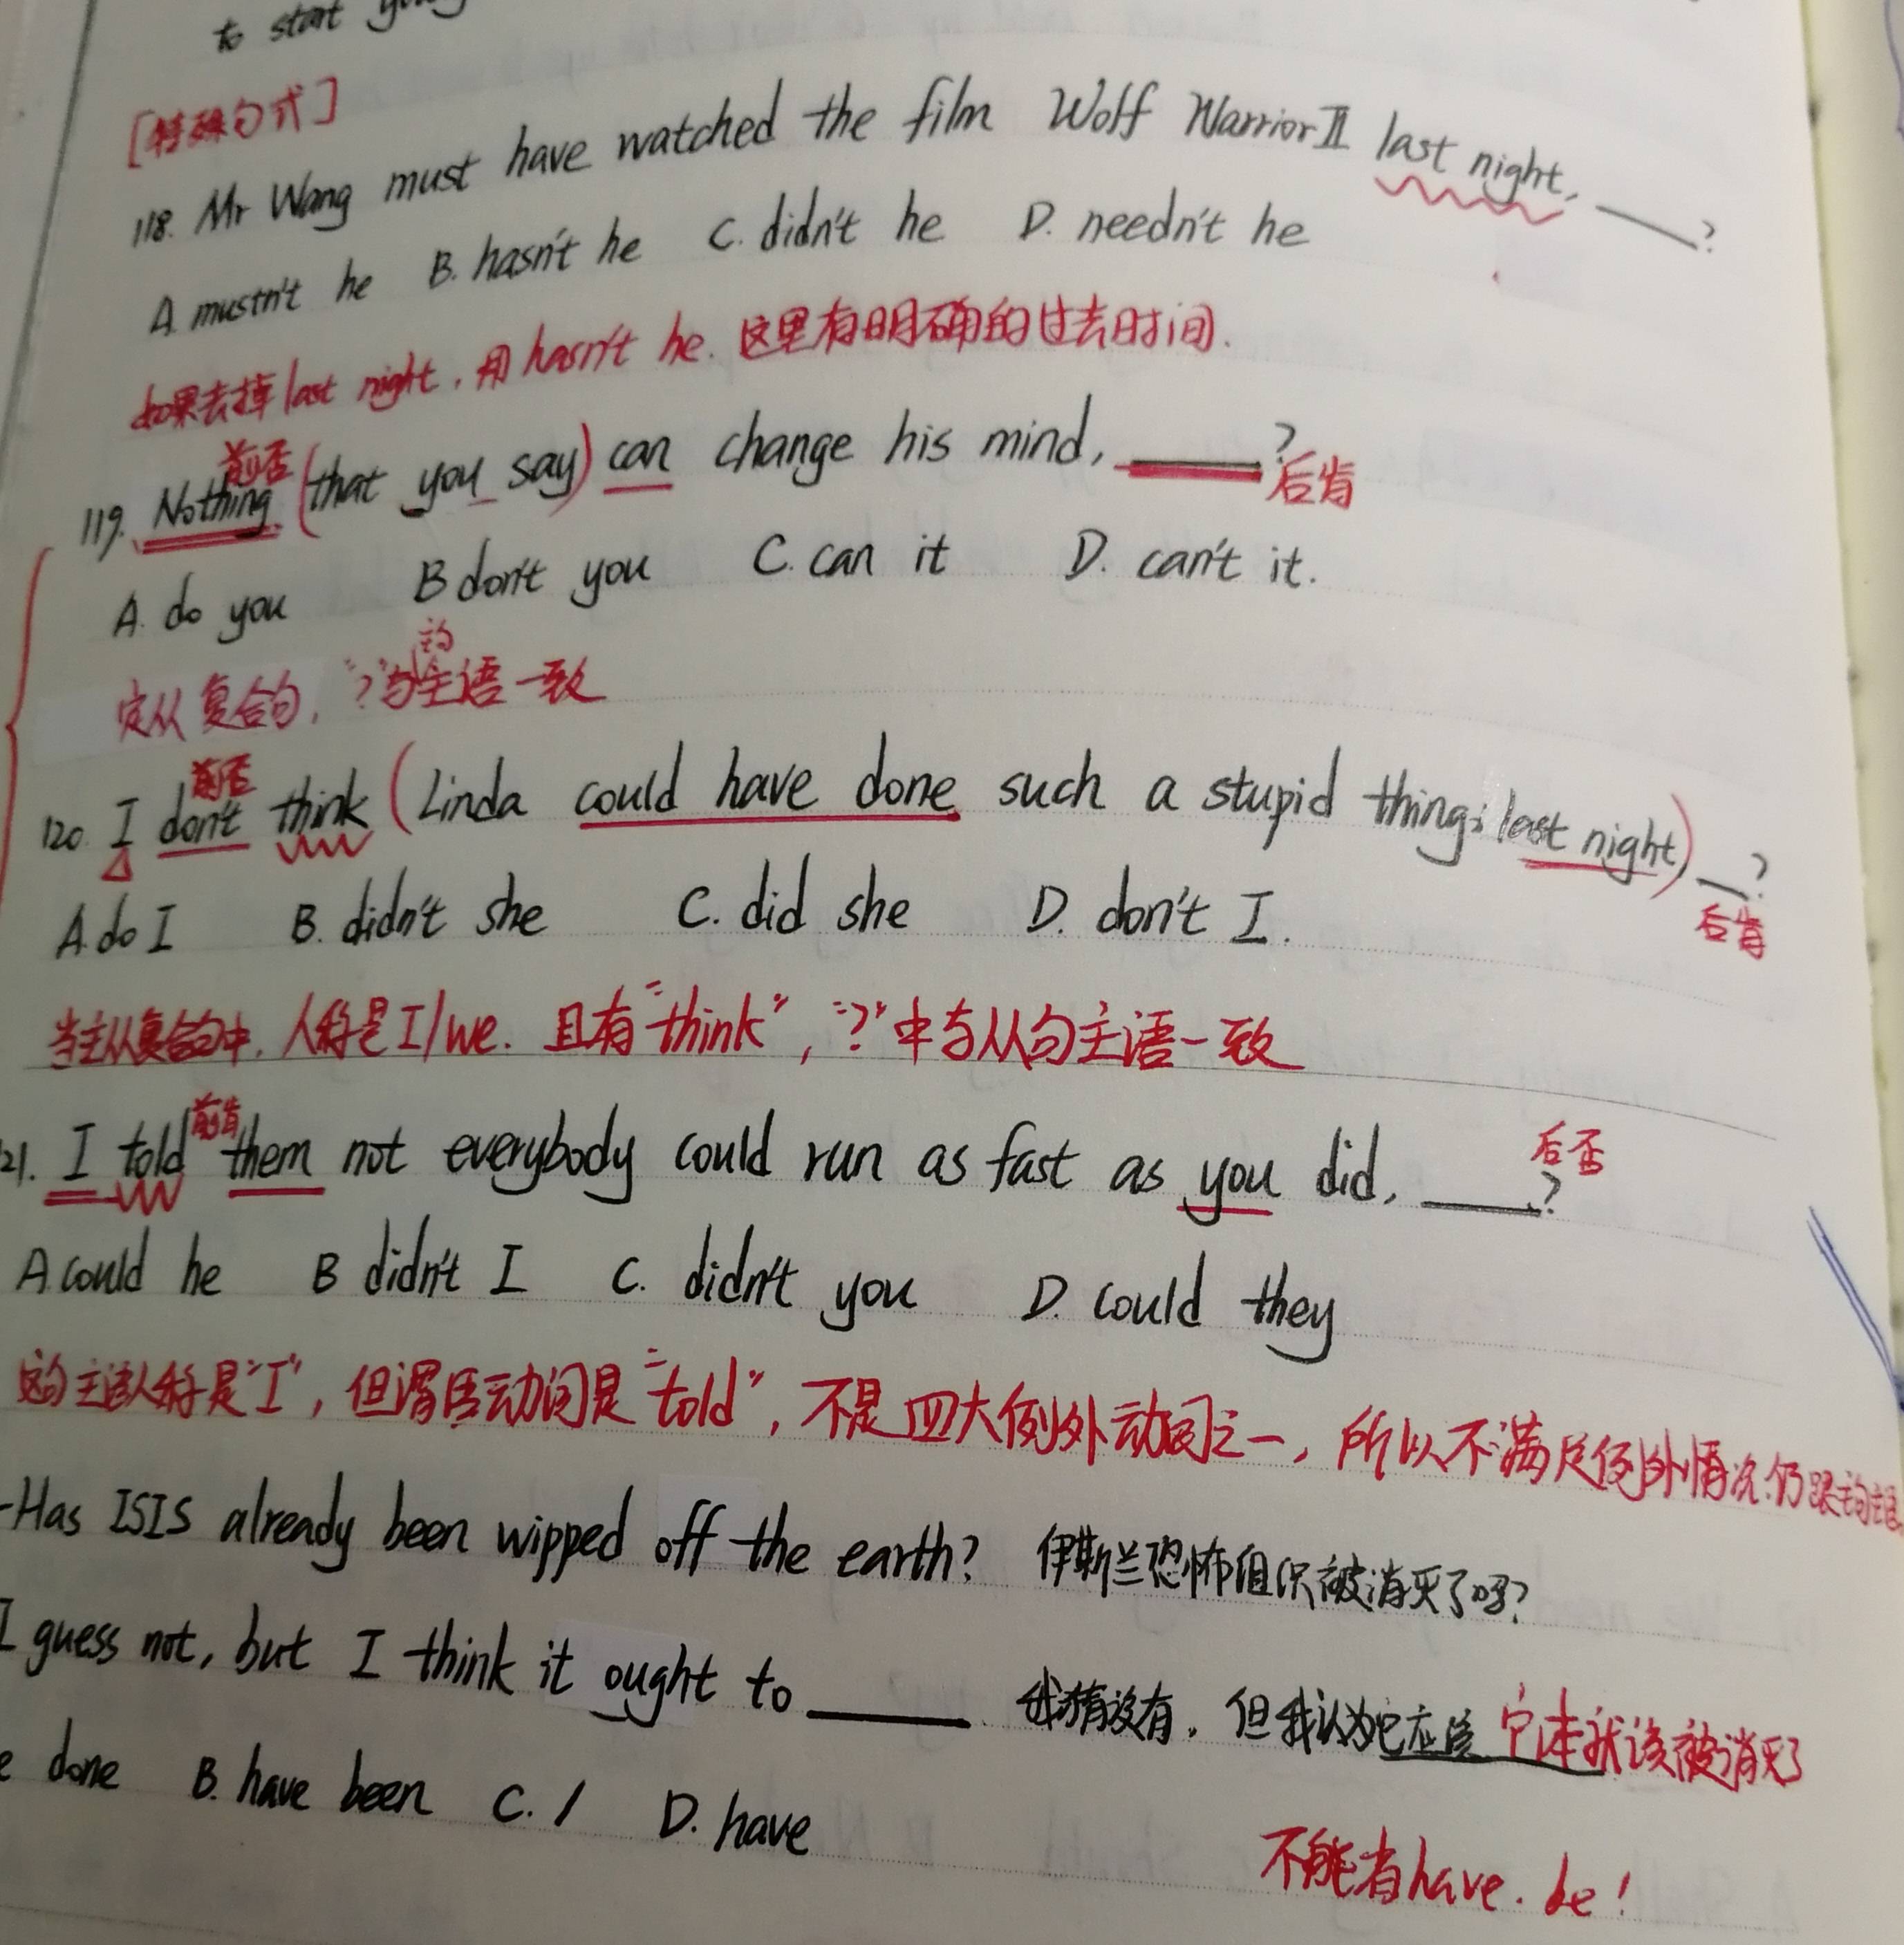 to start
[特殊句式]
118. Mr Wang must have watched the film Wolf Warrior II last night, ____?
A. mustn't he B. hasn't he C. didn't he D. needn't he
如果去掉last night，用hasn't he. 这里有明确的过去时间.
前否
119. Nothing (that you say) can change his mind, ____?
后肯
A. do you B don't you C. can it D. can't it.
主句
定从复合句，"?"与主语一致
前否
120. I don't think (Linda could have done such a stupid thing; last night) __?
后肯
A. do I B. didn't she C. did she D. don't I.
当主从复合句中，人称是I/we. 且有"think"，"?"中与从句主语一致
前肯
21. I told them not everybody could run as fast as you did, ____?
后否
A. could he B didn't I C. didn't you D. could they
主语人称是"I"，但谓语动词是"told"，不是四大例外动词之一，所以不满足例外情况.仍跟主句主语
-Has ISIS already been wipped off the earth? 伊斯兰恐怖组织被消灭了吗?
I guess not, but I think it ought to ____ 我猜没有，但我认为它应该 它本就该被消灭了
e done B. have been C. / D. have
不能省have. be!